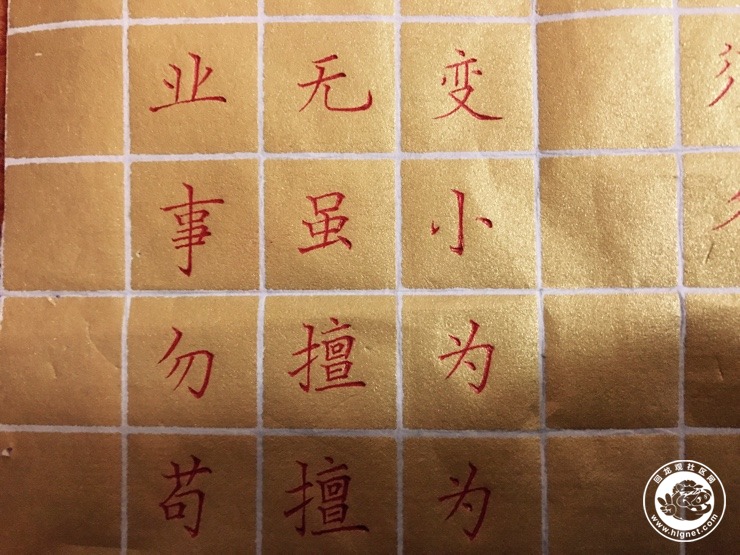 业无变
事虽小
勿擅为
苟擅为
回龙观社区网
www.hlgnet.com